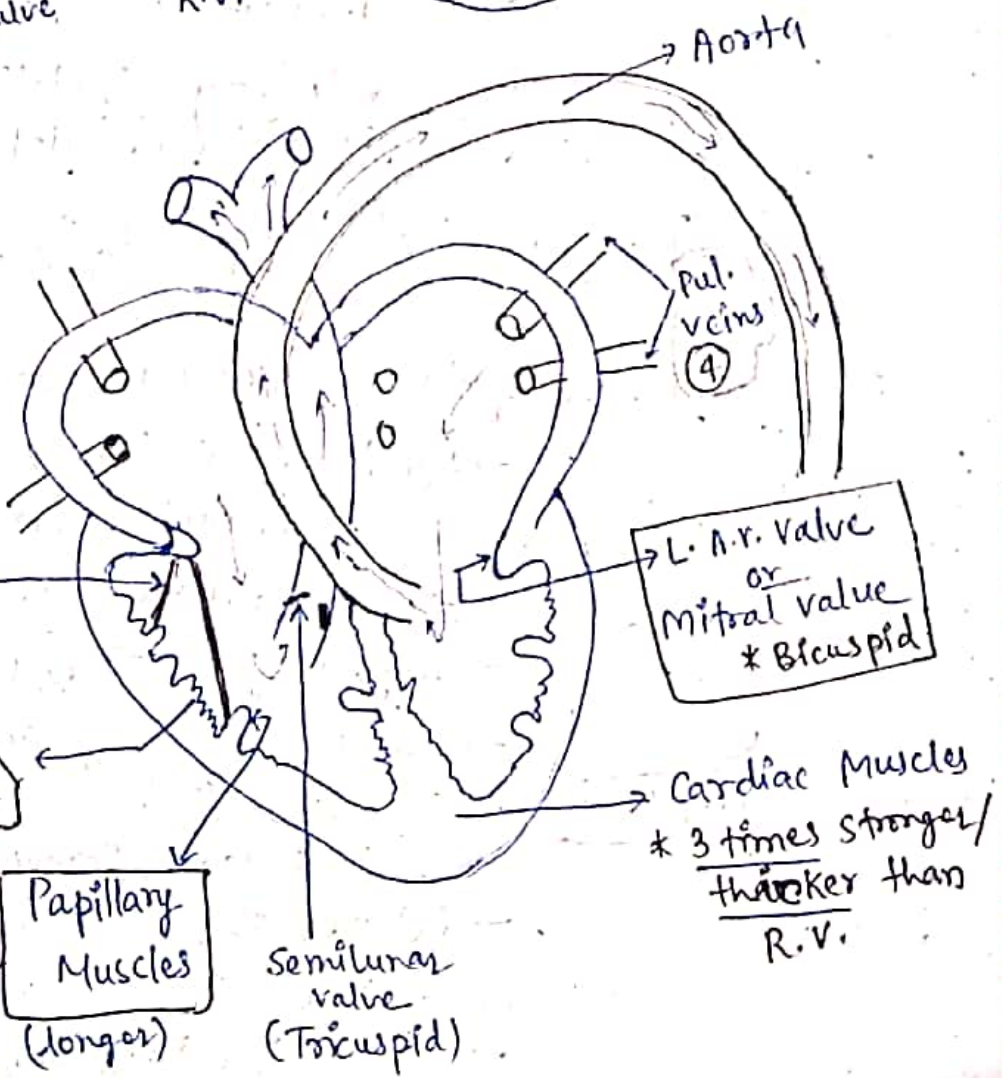 Aorta
Pul.
veins
④
L. A.V. Valve
or
Mitral valve
* Bicuspid
Cardiac Muscles
* 3 times stronger/
thicker than
R.V.
Papillary
Muscles
(longer)
Semilunar
valve
(Tricuspid)